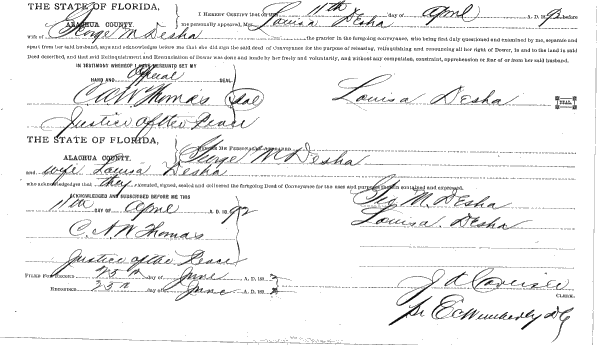 THE STATE OF FLORIDA,
ALACHUA COUNTY.
I HEREBY CERTIFY that on this 11th day of April A. D. 1892 before
me personally appeared, Mrs Louisa Desha
wife of George M Desha the grantor in the foregoing conveyance, who being first duly questioned and examined by me, separate and
apart from her said husband, says and acknowledges before me that she did sign the said deed of Conveyance for the purpose of releasing, relinquishing and renouncing all her right of Dower, in and to the land in said
Deed described, and that said Relinquishment and Renunciation of Dower was done and made by her freely and voluntarily, and without any compulsion, constraint, apprehension or fear of or from her said husband.
IN TESTIMONY WHEREOF I HAVE HEREUNTO SET MY
HAND AND Official SEAL
C A W Thomas Seal
Louisa Desha SEAL
Justice of the Peace
THE STATE OF FLORIDA,
ALACHUA COUNTY.
BEFORE ME PERSONALLY APPEARED George M Desha
and wife Louisa Desha
who acknowledges that they executed, signed, sealed and delivered the foregoing Deed of Conveyance for the uses and purposes therein contained and expressed.
ACKNOWLEDGED AND SUBSCRIBED BEFORE ME THIS
11th DAY OF April A. D. 1892
Geo M. Desha
Louisa. Desha
C. A. W Thomas
Justice of the Peace
FILED FOR RECORD 25th day of June A. D. 1892
RECORDED 25th day of June A. D. 189
CLERK.
pr E C Wimberly D C